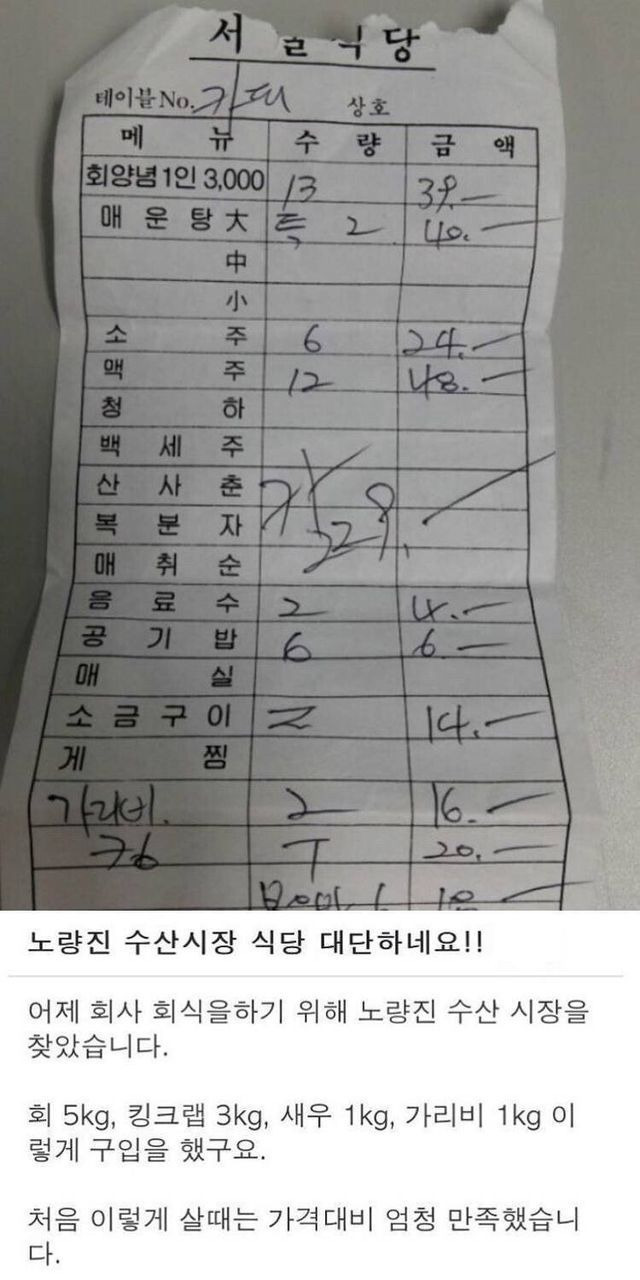 서울식당
테이블No. 카대 상호
메 뉴 수 량 금 액
회양념1인 3,000 13 39.—
매 운 탕 大 특 2 40.—
中
小
소 주 6 24.—
맥 주 12 48.—
청 하
백 세 주
산 사 춘
복 분 자
매 취 순
음 료 수 2 4.—
공 기 밥 6 6.—
매 실
소 금 구 이 14.—
게 찜
가리비. 2 16.—
20.—
노량진 수산시장 식당 대단하네요!!
어제 회사 회식을하기 위해 노량진 수산 시장을
찾았습니다.
회 5kg, 킹크랩 3kg, 새우 1kg, 가리비 1kg 이
렇게 구입을 했구요.
처음 이렇게 살때는 가격대비 엄청 만족했습니
다.